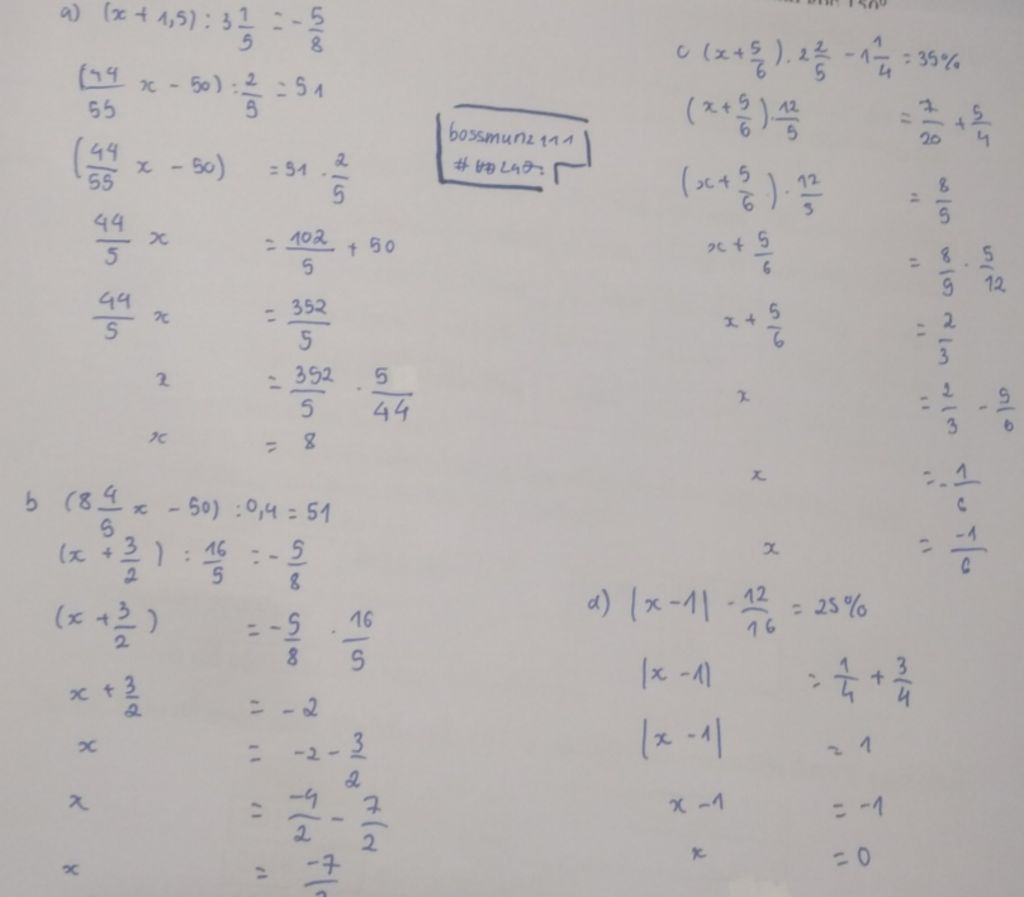 a) (x + 1,5) : 3 1/5 = - 5/8
(44/55 x - 50) : 2/5 = 51
(44/55 x - 50) = 51 . 2/5
44/5 x = 102/5 + 50
44/5 x = 352/5
x = 352/5 . 5/44
x = 8
b (8 4/5 x - 50) : 0,4 = 51
(x + 3/2) : 16/5 = - 5/8
(x + 3/2) = - 5/8 . 16/5
x + 3/2 = - 2
x = -2 - 3/2
x = -4/2 - 7/2
x = -7/2
bossmunz111
c (x + 5/6) . 2 2/5 - 1 1/4 = 35%
(x + 5/6) . 12/5 = 7/20 + 5/4
(x + 5/6) . 12/5 = 8/5
x + 5/6 = 8/5 . 5/12
x + 5/6 = 2/3
x = 2/3 - 5/6
x = - 1/6
x = -1/6
d) |x - 1| - 12/16 = 25%
|x - 1| = 1/4 + 3/4
|x - 1| = 1
x - 1 = -1
x = 0